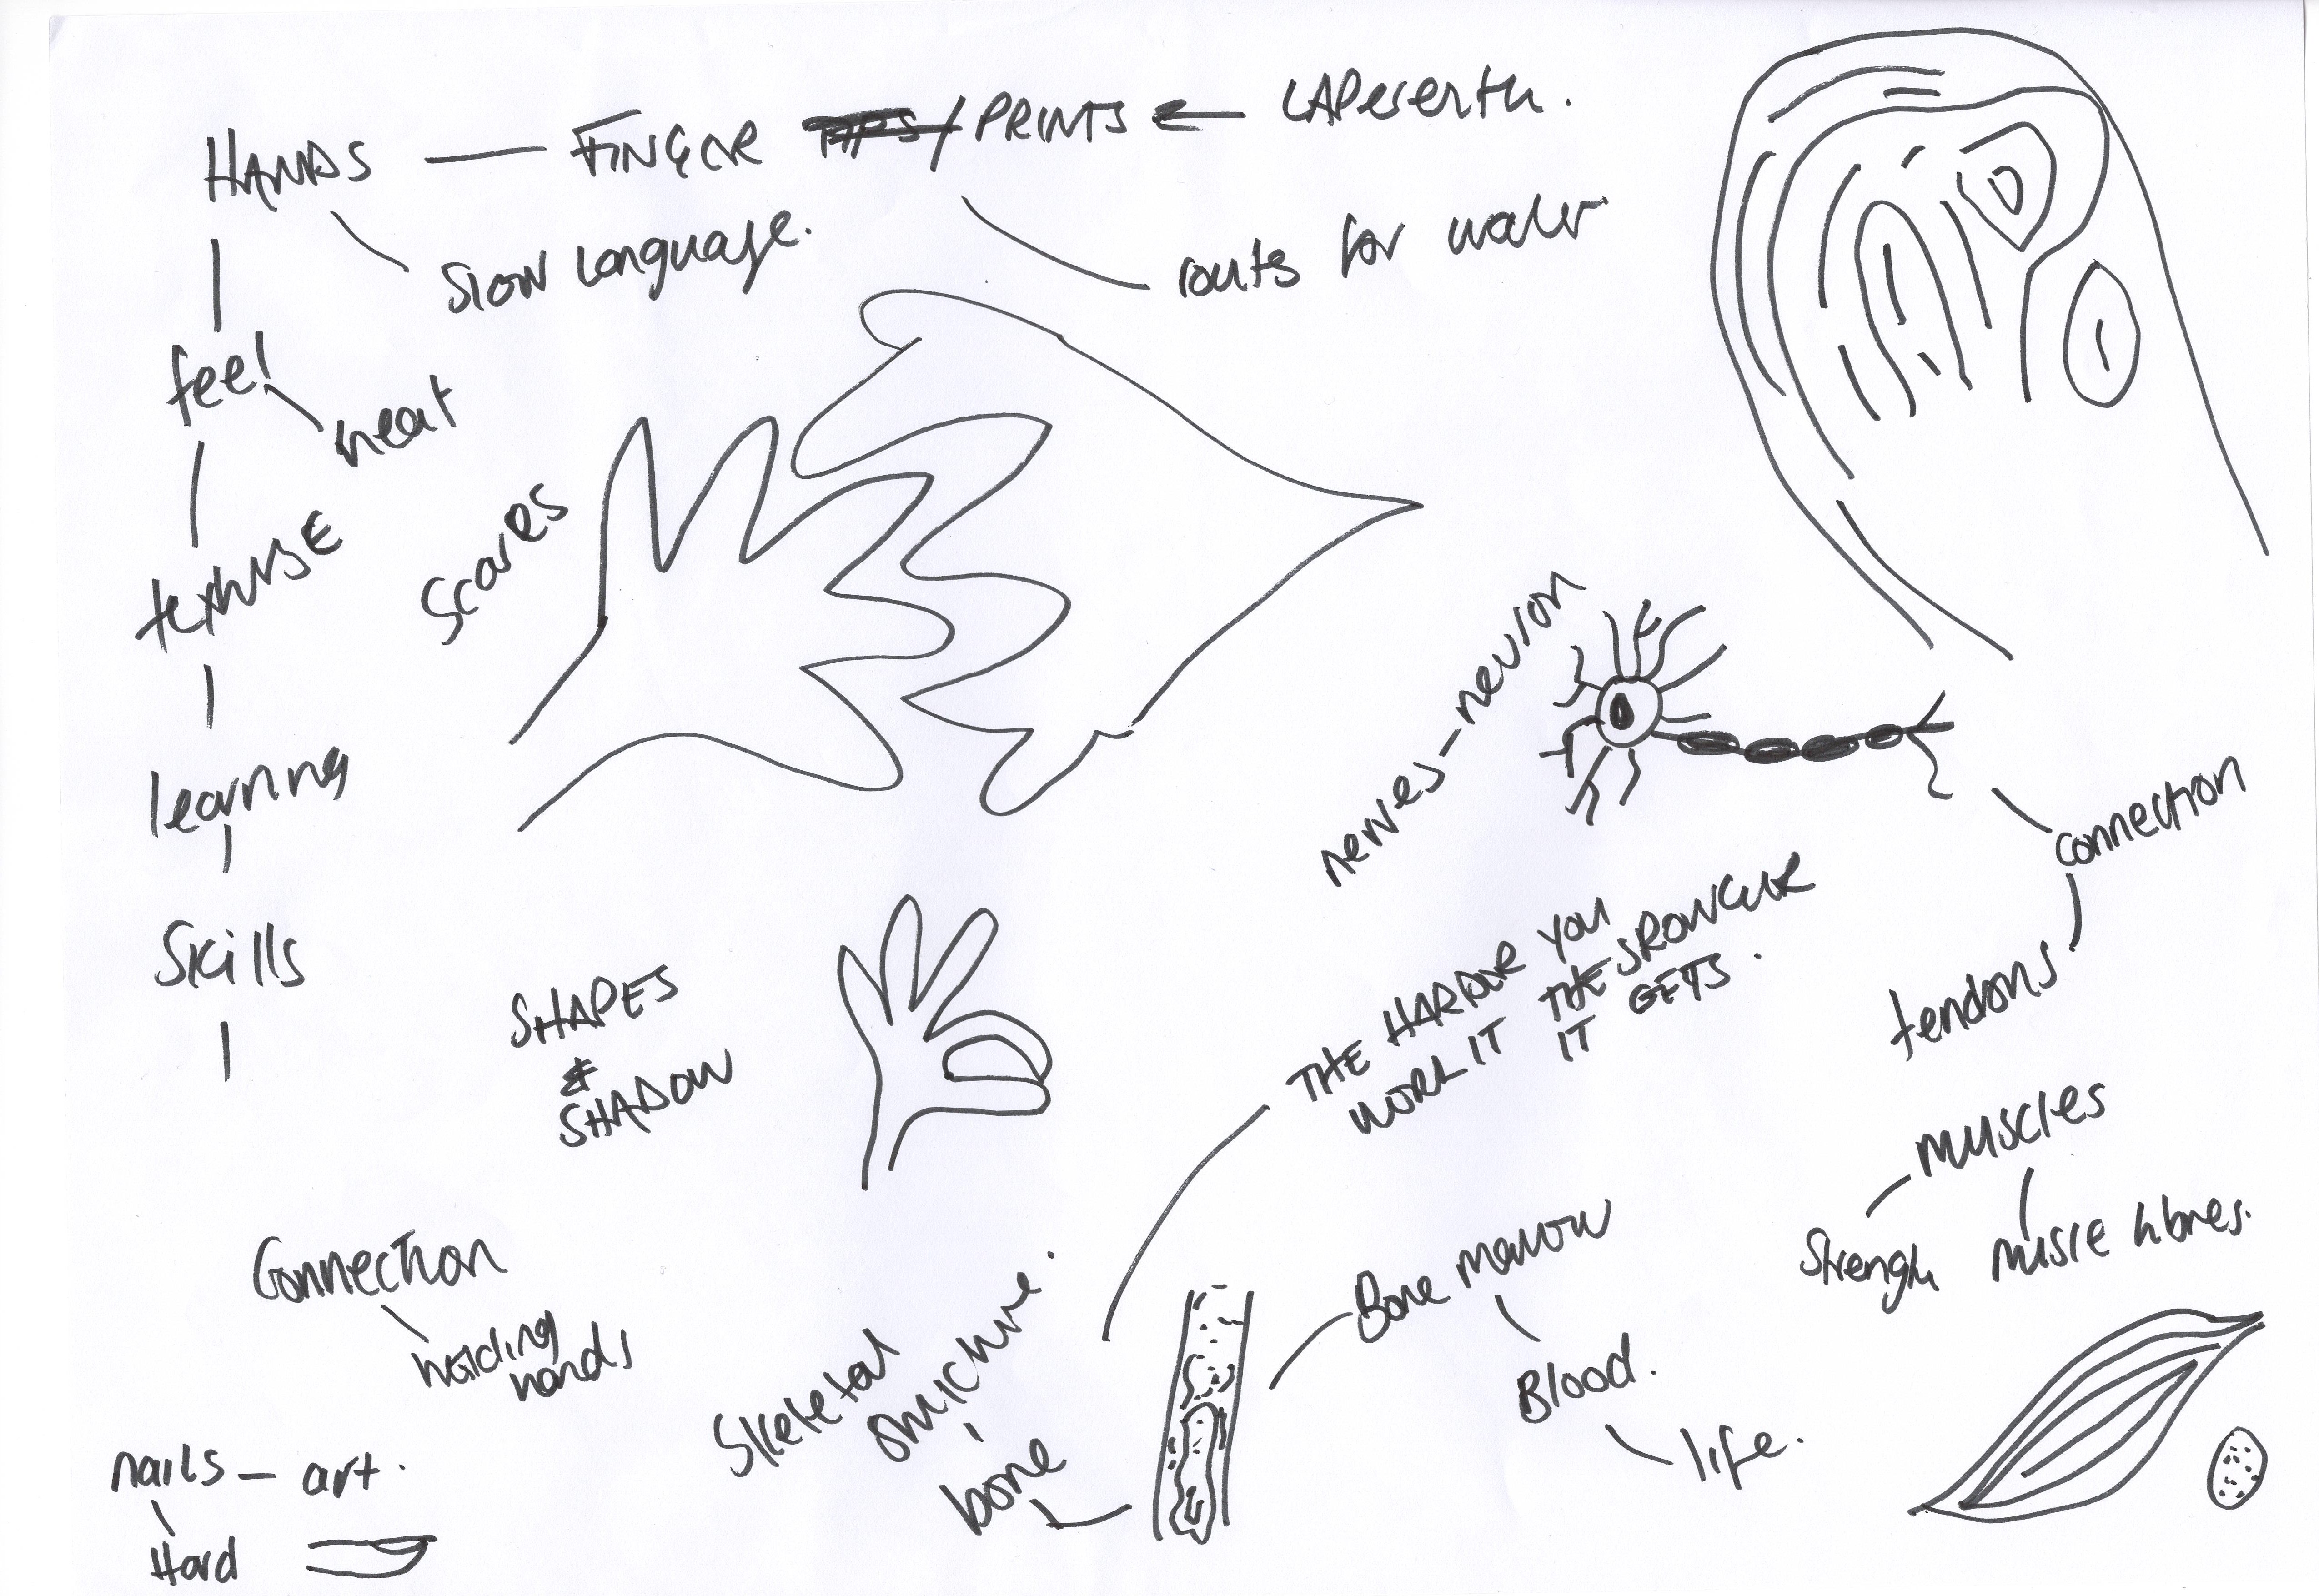 HANDS — FINGER / PRINTS ←
SIGN Language.
routs for water
feel
heat
texturse
Scares
learning
nerves – neuron
connection
Skills
SHAPES
&
SHADOW
THE HARDER YOU
WORK IT THE SRONGER
IT GETS.
tendons
muscles
Strength
muscle fibres.
Connection
holding
hands
Skeletal
structure.
bone
Bone marrow
Blood.
life.
nails – art.
Hard